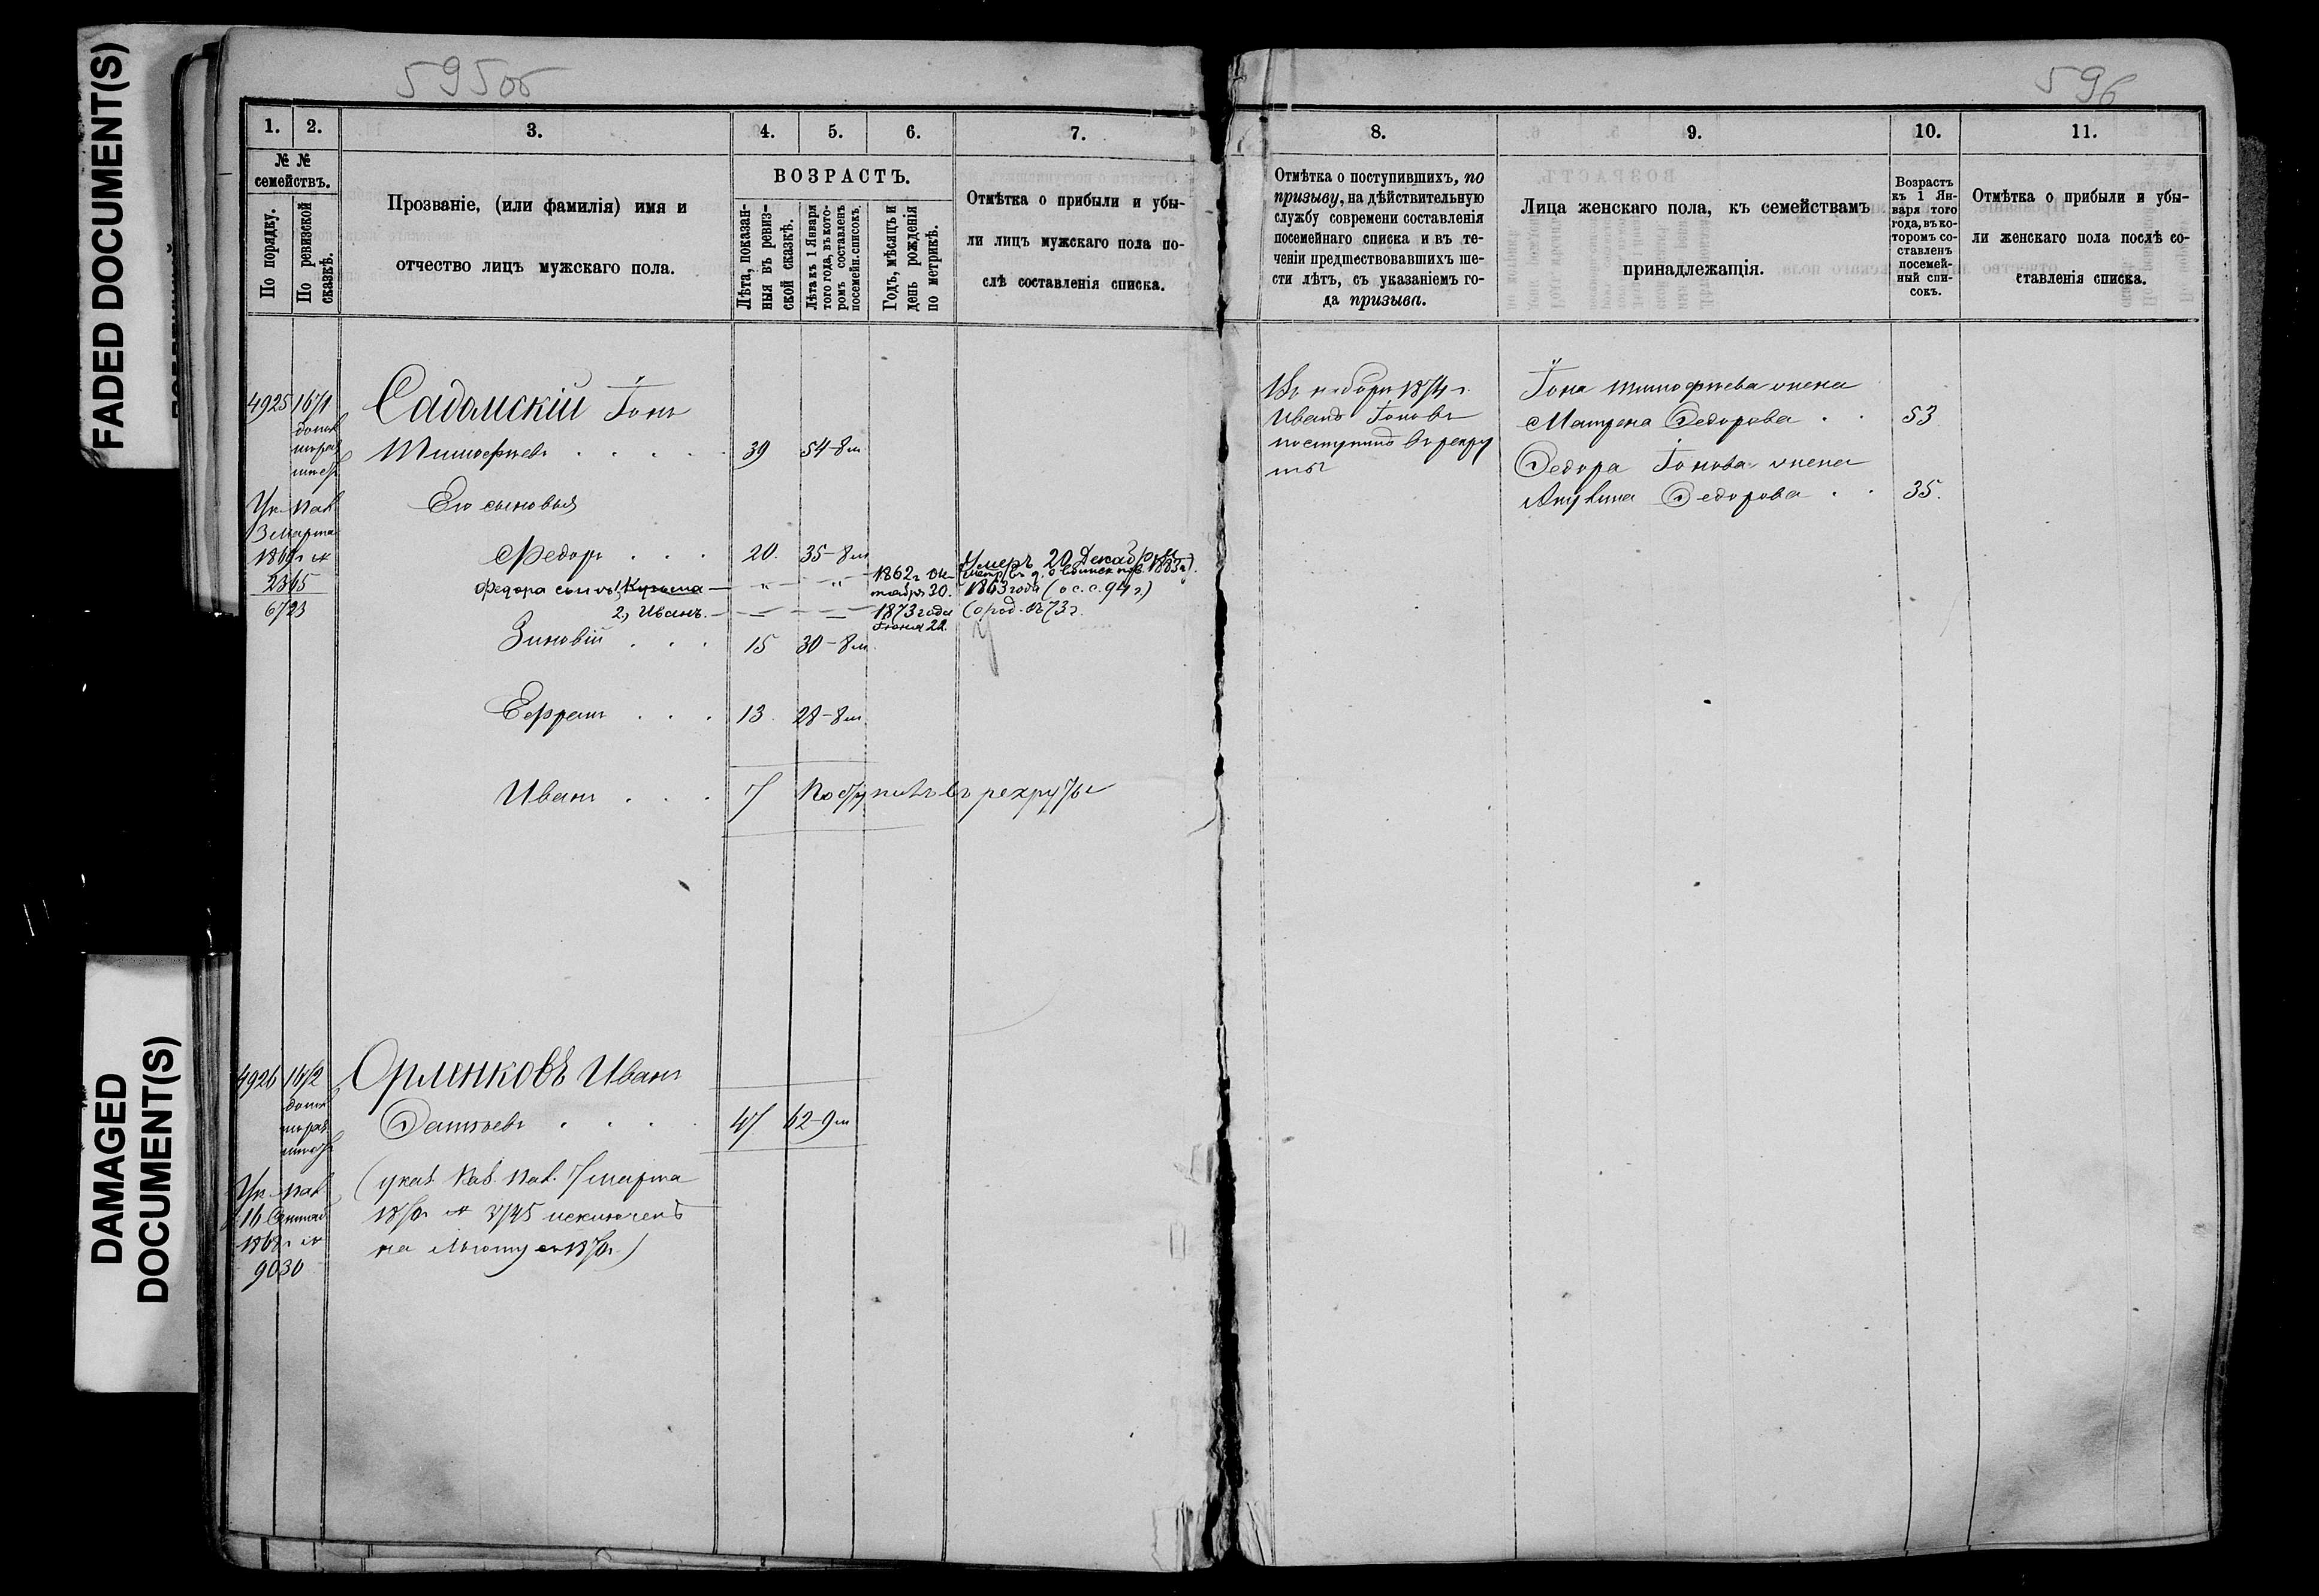 FADED DOCUMENT(S)
DAMAGED
DOCUMENT(S)
595об
1. 2. 3. 4. 5. 6. 7.
№ №
семействъ.
По порядку.
По ревизской
сказкѣ.
Прозваніе, (или фамилія) имя и
отчество лицъ мужскаго пола.
ВОЗРАСТЪ.
Лѣта, показан-
ныя въ ревиз-
ской сказкѣ.
Лѣта къ 1 Января
того года, въ кото-
ромъ составленъ
посемейн. списокъ.
Годъ, мѣсяцъ и
день рожденія
по метрикѣ.
Отмѣтка о прибыли и убы-
ли лицъ мужскаго пола по-
слѣ составленія списка.
4925 1671 Садомскій Іонъ
Тимофѣевъ . . . . . 39 54-8м
Его сыновья
Ук. Пал.
13 Марта
1860г №
2365
6723
Федоръ . . . 20. 35-8м Умеръ 20 Декабря
Федора сыновья 1, Кузьма — „ „ 1862г Ок-
тября 30. 1863 года (о с.с. 94 г)
2, Иванъ. — 1873 года
Іюня 22.
Зиновій . . . 15 30-8м
Ефремъ . . . 13 28-8м
Иванъ . . . 7 Поступилъ въ рекруты
4926 1672 Орленковъ Иванъ
47 62-9м
Ук. Пал.
9030
(указ. Каз. Пал. 7 марта
исключенъ
на льготу
596
8. 9. 10. 11.
Отмѣтка о поступившихъ, по
призыву, на дѣйствительную
службу современи составленія
посемейнаго списка и въ те-
ченіи предшествовавшихъ ше-
сти лѣтъ, съ указаніемъ го-
да призыва.
Лица женскаго пола, къ семействамъ
принадлежащія.
Возрастъ
къ 1 Ян-
варя того
года, въ ко-
торомъ со-
ставленъ
посемей-
ный спи-
сокъ.
Отмѣтка о прибыли и убы-
ли женскаго пола послѣ со-
ставленія списка.
Въ наборъ 1874 г.
Иванъ Іоновъ
поступилъ въ рекру
ты
Іона Тимофѣева жена
Матрена Федорова . . 53
Федора Іонова жена
Акулина Федорова . . 35.